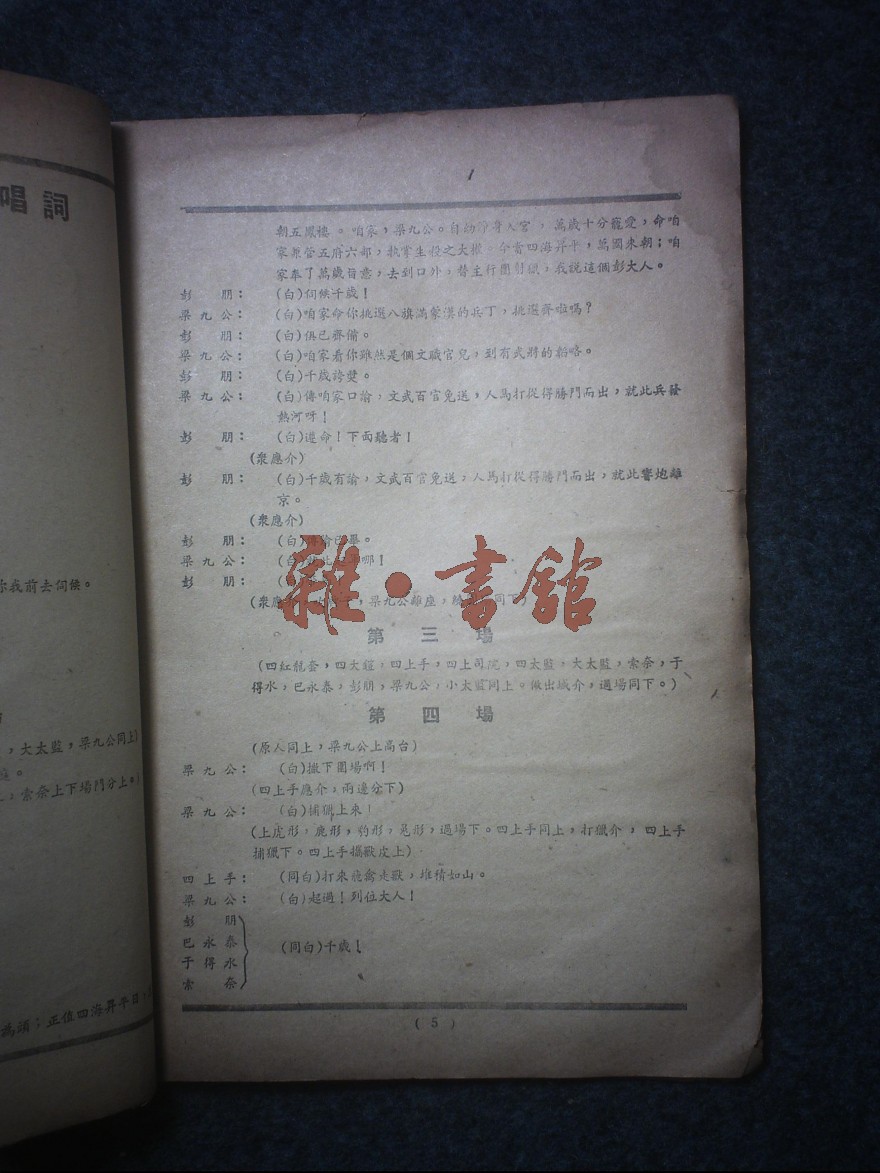 唱詞
你我前去伺候。
，大太監，梁九公同上)
，索奈上下場門分上。)
為頭；正值四海昇平日，
朝五鳳樓。咱家，梁九公。自幼淨身入宮，萬歲十分寵愛，命咱
家兼管五府六部，執掌生殺之大權。今當四海昇平，萬國來朝；咱
家奉了萬歲旨意，去到口外，替主行圍射獵，我說這個彭大人。
彭朋：(白)伺候千歲！
梁九公：(白)咱家命你挑選八旗滿蒙漢的兵丁，挑選齊啦嗎？
彭朋：(白)俱已齊備。
梁九公：(白)咱家看你雖然是個文職官兒，到有武將的韜略。
彭朋：(白)千歲誇獎。
梁九公：(白)傳咱家口諭，文武百官免送，人馬打從得勝門而出，就此兵發
熱河呀！
彭朋：(白)遵命！下面聽者！
(衆應介)
彭朋：(白)千歲有諭，文武百官免送，人馬打從得勝門而出，就此響炮離
京。
(衆應介)
彭朋：(白)諭已畢。
梁九公：(白)哪！
彭朋：(
(衆應介，梁九公離座，同下)
雜·書館
第三場
(四紅龍套，四大鎧，四上手，四上司院，四太監，大太監，索奈，于
得水，巴永泰，彭朋，梁九公，小太監同上。做出城介，過場同下。)
第四場
(原人同上，梁九公上高台)
梁九公：(白)撒下圍場啊！
(四上手應介，兩邊分下)
梁九公：(白)捕獵上來！
(上虎形，鹿形，豹形，兎形，過場下。四上手同上，打獵介，四上手
捕獵下。四上手攜獸皮上)
四上手：(同白)打來飛禽走獸，堆積如山。
梁九公：(白)起過！列位大人！
彭朋
巴永泰
于得水
索奈
(同白)千歲！
(5)